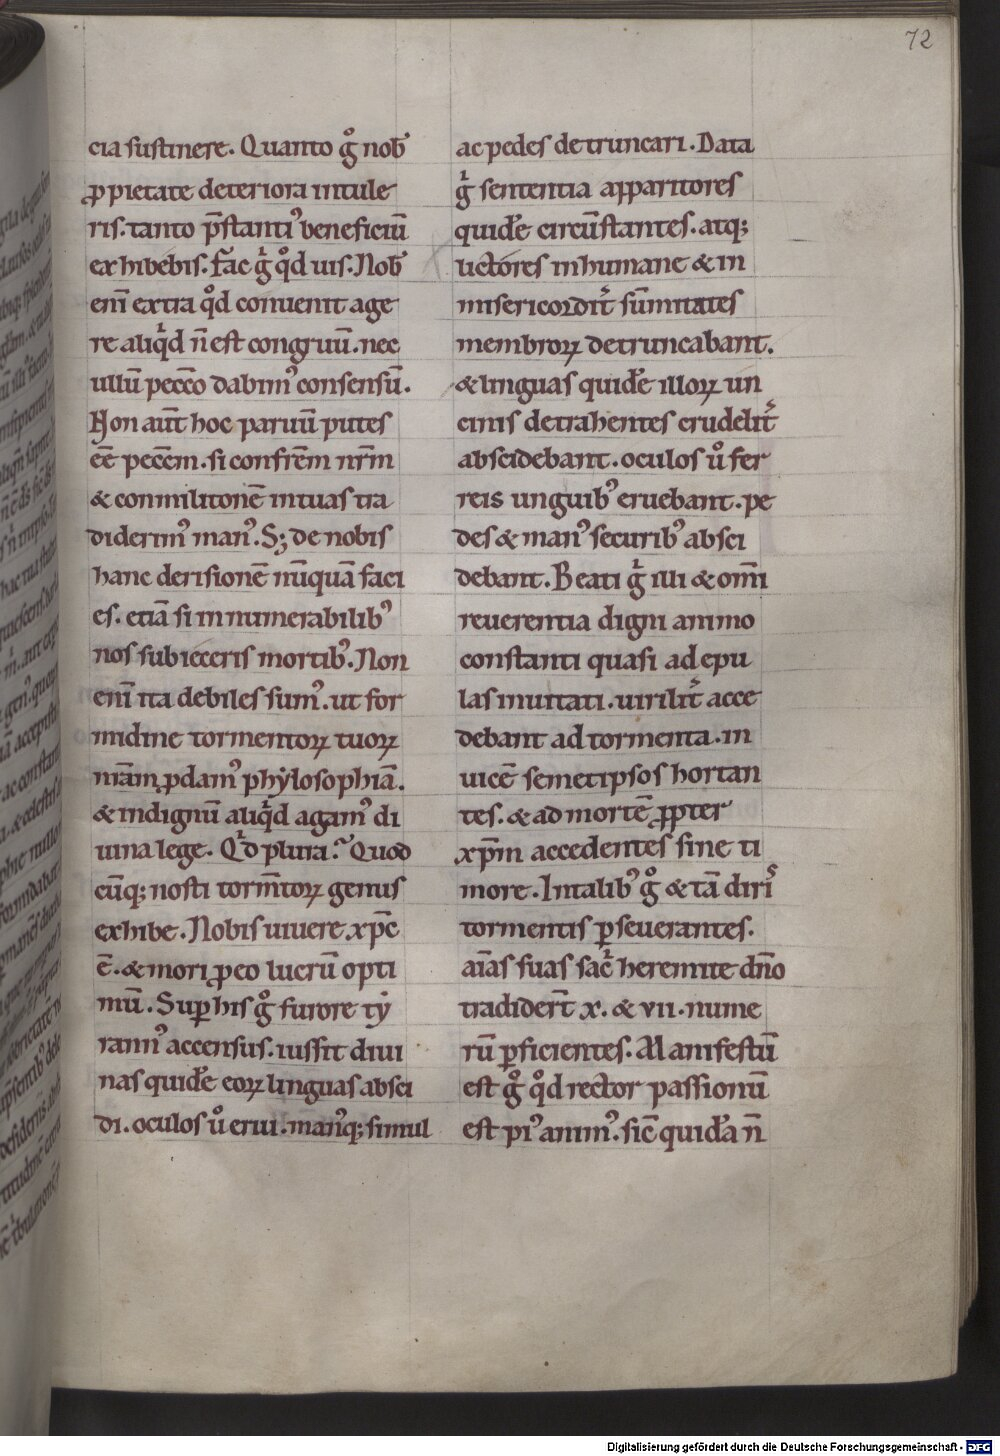 72
cia sustinere. Quanto g̊ nob̕
ꝓ pietate deteriora intule
ris. tanto p̄stanti᾽ beneficiū
exhibebis. Fac g̊ qͦd uis. Nob̕
eni̅ extra qͦd conuenit age
re aliqͥd n̄ est congruū. nec
ullū pecc̄o dabim᾽ consensū.
Non aut̄ hoc paruū putes
ēē pecc̄m. si confrēm nr̄m
& conmilitonē in tuas tra
diderim᾽ man᾽. S; de nobis
hanc derisionē nūquā faci
es. etiā si innumerabilib᾽
nos subieceris mortib᾽. Non
eni̅ ita debiles sum᾽. ut for
midine tormentoꝝ tuoꝝ
nr̄am ꝑdam᾽ phẏlosophiā.
& indignū aliqͥd agam᾽ di
uina lege. Qͥd plura? Quod
cūq; nosti torm̄toꝝ genus
exhibe. Nobis uiuere xp̄c
ē. & mori ꝓ eo lucrū opti
mū. Suꝑ his g̊ furore tẏ
rann᾽ accensus. iussit diui
nas quidē eoꝝ linguas absci
di. oculos ů erui. man᾽q; simul
ac pedes detruncari. Data
gͥ sententia apparitores
quidē circūstantes. atq;
lictores inhumane & in
misericordit̄ sūmitates
membroꝝ detruncabant.
& linguas quidē illoꝝ un
cinis detrahentes crudelit̄
abscidebant. oculos ů fer
reis unguib᾽ eruebant. pe
des & man᾽ securib᾽ absci
debant. Beati gͥ illi & omi̅
reuerentia digni animo
constanti quasi ad epu
las inuitati. uirilit̄ acce
debant ad tormenta. in
uicē semetipsos hortan
tes. & ad mortē ꝓpter
xp̄m accedentes sine ti
more. In talib᾽ g̊ & tā diri᾽
tormentis ꝑseuerantes.
aīas suas sac̄ heremite dn̄o
tradider̄t x. & vii. nume
rū ꝑficientes. Manifestū
est g̊ qͦd rector passionū
est pi᾽ anim᾽. sic̄ quidā n̄
Digitalisierung gefördert durch die Deutsche Forschungsgemeinschaft - DFG